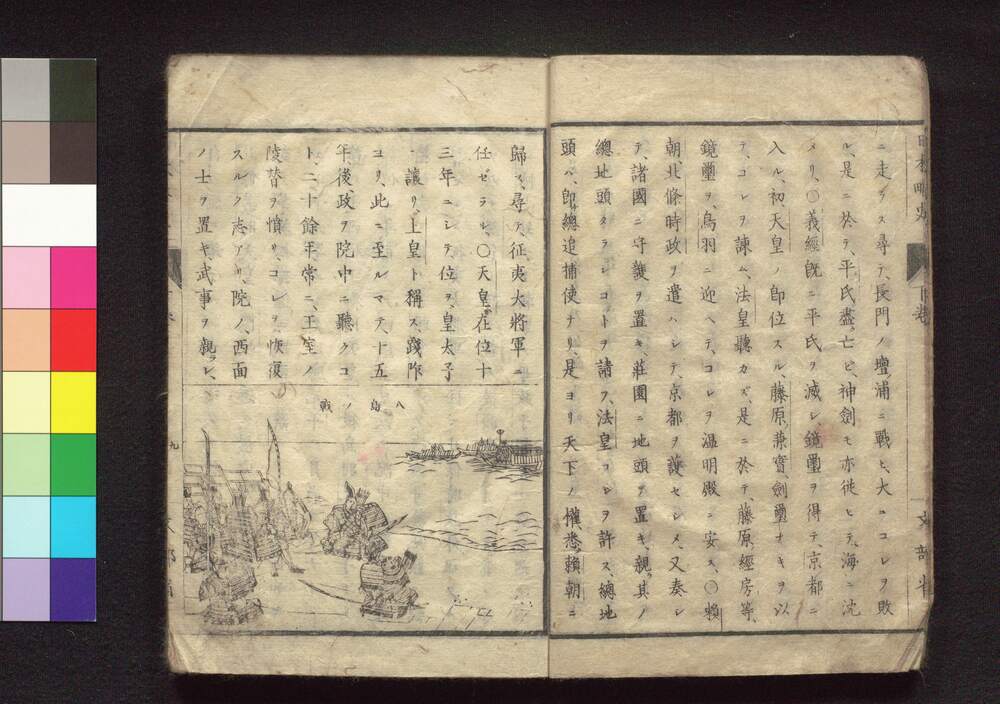 ニ走ラス尋テ、長門ノ壇浦ニ戰ヒ、大ニコレヲ敗
ル、是ニ於テ、平氏盡ク亡ビ、神劍モ亦從ヒテ、海ニ沈
メリ、〇義經既ニ平氏ヲ滅シ、鏡璽ヲ得テ、京都ニ
入ル、初天皇ノ即位スル、藤原兼實、劍璽ナキヲ以
テ、コレヲ諫ム、法皇聽カズ、是ニ於テ、藤原經房等、
鏡璽ヲ、鳥羽ニ迎ヘテ、コレヲ温明殿ニ安ス、〇賴
朝、北條時政ヲ遣ハシテ、京都ヲ護セシメ、又奏シ
テ、諸國ニ守護ヲ置キ、莊園ニ地頭ヲ置キ、親其ノ
總地頭タランコトヲ請フ、法皇コレヲ許ス、總地
頭ハ、即總追捕使ナリ、是ヨリ天下ノ權、悉賴朝ニ
歸ス、尋テ、征夷大將軍ニ
任ゼラル、〇天皇、在位十
三年ニシテ、位ヲ、皇太子
ニ讓リ、上皇ト稱ス、踐祚
ヨリ、此ニ至ルマテ、十五
年、後、政ヲ院中ニ聽クコ
ト、二十餘年、常ニ、王室ノ
陵替ヲ憤リ、コレヲ恢復
スルノ志アリ、院ノ、西面
ノ士ヲ置キ、武事ヲ親ラシ、
八島ノ戰
九